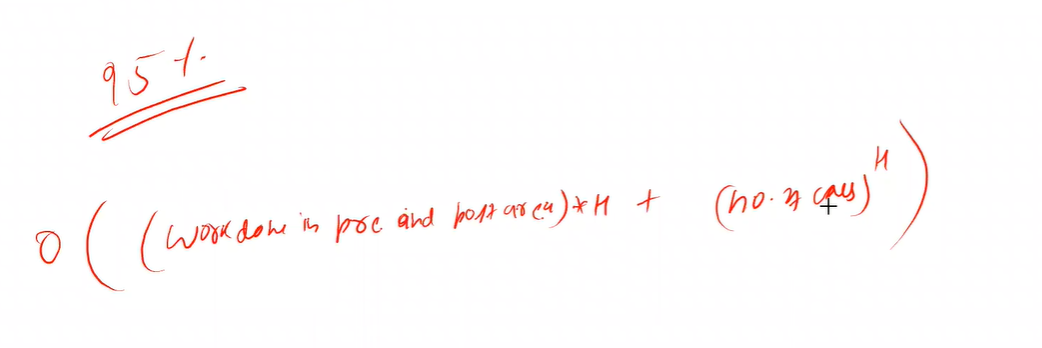 95%
O ( (work done in pre and post area)*H + (no. of calls)^H )